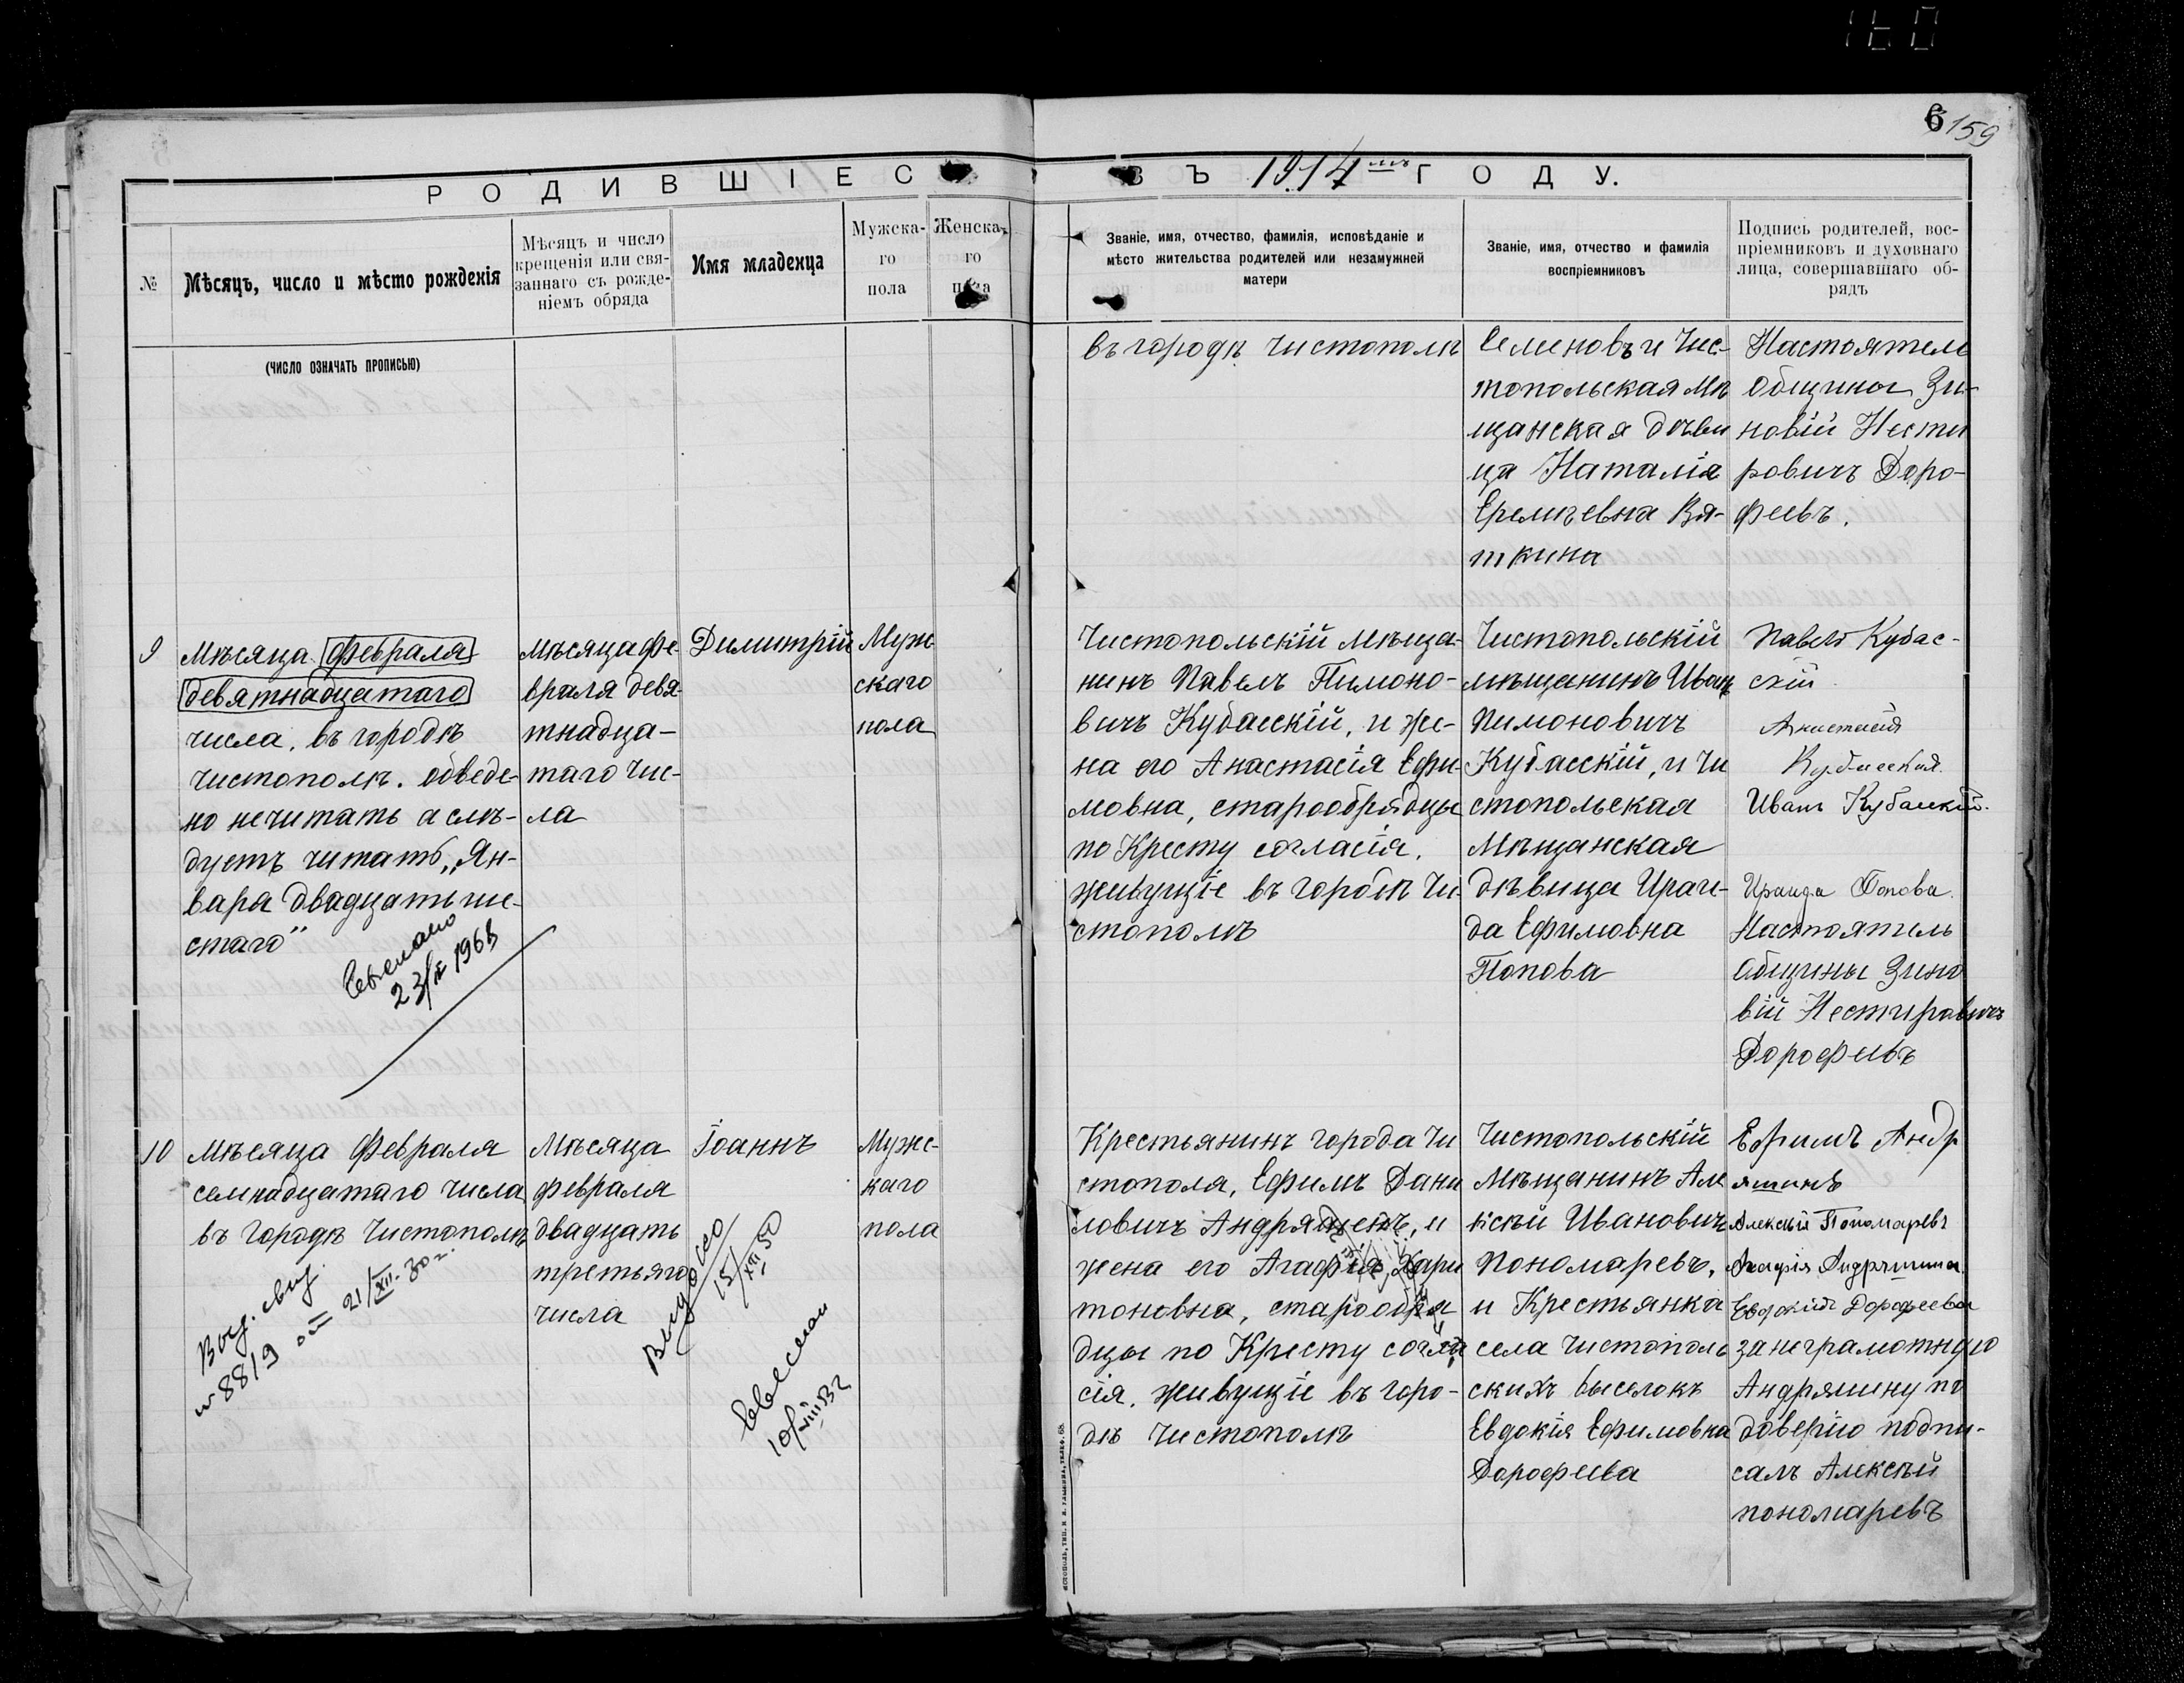 160
6 159
РОДИВШІЕС
ВЪ 1914мъ ГОДУ.
№
Мѣсяцъ, число и мѣсто рожденія
Мѣсяцъ и число
крещенія или свя-
заннаго съ рожде-
ніемъ обряда
Имя младенца
Мужска-
го
пола
Женска-
го
пола
Званіе, имя, отчество, фамилія, исповѣданіе и
мѣсто жительства родителей или незамужней
матери
Званіе, имя, отчество и фамилія
воспріемниковъ
Подпись родителей, вос-
пріемниковъ и духовнаго
лица, совершавшаго об-
рядъ
(ЧИСЛО ОЗНАЧАТЬ ПРОПИСЬЮ)
въ городѣ Чистополѣ
Семеновъ и Чис-
топольская мѣ
щанская дѣви
ца Наталія
Еремѣевна Вя-
ткина
Настоятель
Общины Зи-
новій Нести
ровичъ Доро-
феевъ.
9
Мѣсяца Февраля
девятнадцатаго
числа, въ городѣ
Чистополѣ. Обведе-
но не читать а слѣ-
дуетъ читать „Ян-
варя двадцать ше-
стаго"
23/IX 1965
мѣсяца Фе-
враля девя-
тнадца-
таго чис-
ла
Димитрій
Муж
скаго
пола
Чистопольскій мѣща-
нинъ Павелъ Пимоно-
вичъ Кубасскій, и же-
на его Анастасія Ефи-
мовна, старообрядцы
по Кресту согласія.
живущіе въ городѣ Чи-
стополѣ
Чистопольскій
мѣщанинъ Иванъ
Пимоновичъ
Кубасскій, и Чи
стопольская
Мѣщанская
дѣвица Ираи-
да Ефимовна
Попова
Павелъ Кубас-
скій
Анастасія
Кубасская
Иванъ Кубасскій.
Ираида Попова.
Настоятель
Общины Зино
вій Нестировичъ
Дорофеевъ
10
Мѣсяца Февраля
семнадцатаго числа
въ городѣ Чистополѣ
Выд. свид.
№ 8819 от 21/XII-30 г.
Мѣсяца
февраля
двадцать
третьяго
числа
Іоаннъ
Выдано
15/XII 50
10/VIII 52
Мужс-
каго
пола
Крестьянинъ города Чи
стополя, Ефимъ Дани
ловичъ Андряшенъ, и
жена его Агафія Хари
тоновна, старообря
дцы по Кресту согла
сія, живущіе въ горо-
дѣ Чистополѣ
Чистопольскій
Мѣщанинъ Але
ксѣй Ивановичъ
Пономаревъ,
и Крестьянка
села Чистополь
скихъ выселокъ
Евдокія Ефимовна
Дорофеева
Ефимъ Андр
яшинъ
Алексѣй Пономаревъ
Агафія Андряшина
Евдокія Дорофеева
за неграмотную
Андряшину по
довѣрію подпи-
салъ Алексѣй
пономаревъ